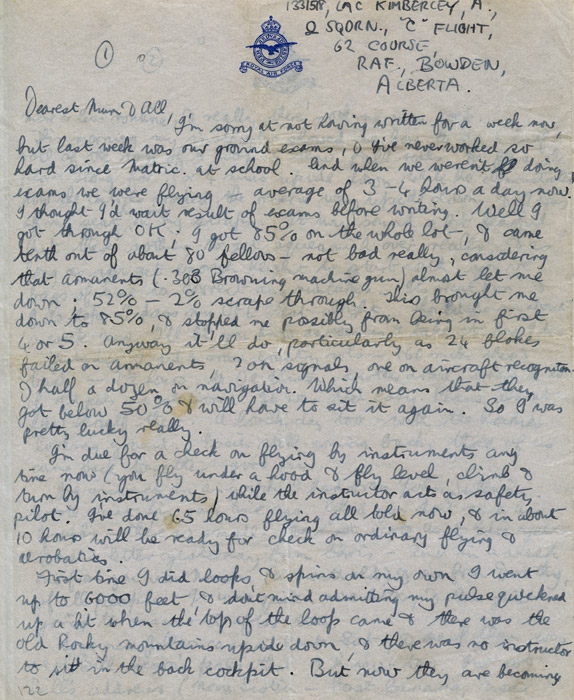 133158, LAC KIMBERLEY, A.,
2 SQDRN., "C" FLIGHT,
62 COURSE,
RAF., BOWDEN,
ALBERTA.
①
ROYAL AIR FORCE
Dearest Mum & All,
I'm sorry at not having written for a week now,
but last week was our ground exams, & I've never worked so
hard since Matric. at school. And when we weren't doing
exams we were flying – average of 3–4 hours a day now.
I thought I'd wait result of exams before writing. Well I
got through OK; I got 85% on the whole lot, & came
tenth out of about 80 fellows – not bad really, considering
that armaments (.303 Browning machine gun) almost let me
down: 52% – 2% scrape through. This brought me
down to 85%, & stopped me possibly from being in first
4 or 5. Anyway it'll do, particularly as 24 blokes
failed on armaments, 2 on signals, one on aircraft recogniton
& half a dozen on navigation. Which means that they
got below 50% & will have to sit it again. So I was
pretty lucky really.
I'm due for a check on flying by instruments any
time now (you fly under a hood & fly level, climb &
turn by instruments) while the instructor acts as safety
pilot. I've done 65 hours flying all told now, & in about
10 hours will be ready for check on ordinary flying &
aerobatics.
First time I did loops & spins on my own I went
up to 6000 feet & don't mind admitting my pulse quickened
up a bit when the top of the loop came & there was the
old Rocky mountains upside down, & there was no instructor
to sit in the back cockpit. But now they are becoming
122